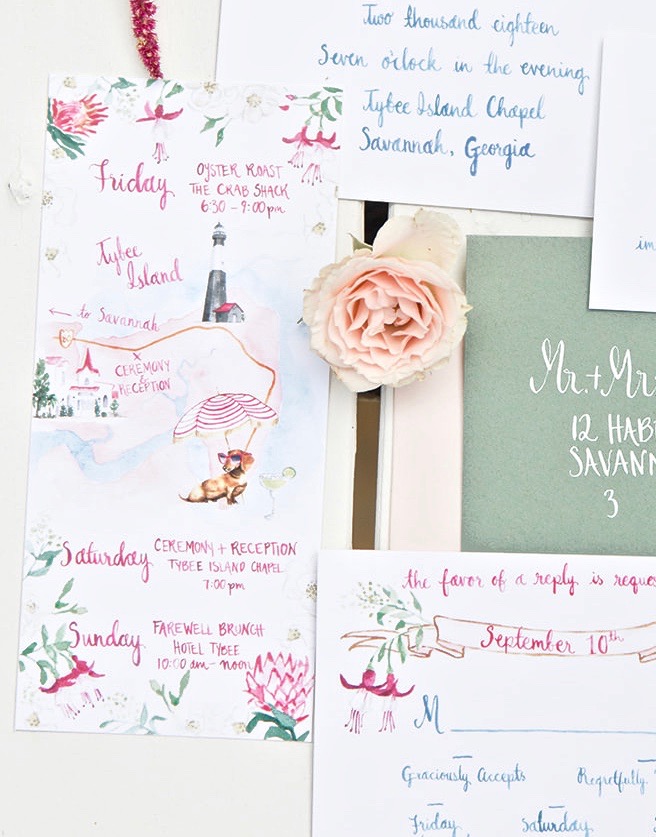 Two thousand eighteen
Seven o'clock in the evening
Tybee Island Chapel
Savannah, Georgia
Friday
OYSTER ROAST
THE CRAB SHACK
6:30 - 9:00 pm
Tybee
Island
to Savannah
x
CEREMONY
&
RECEPTION
Saturday
CEREMONY + RECEPTION
TYBEE ISLAND CHAPEL
7:00 pm
Sunday
FAREWELL BRUNCH
HOTEL TYBEE
10:00 am - noon
im
Mr. + Mr
12 HAB
SAVANN
3
the favor of a reply is reques
September 10th
M
Graciously Accepts
Regretfully
Friday
Saturday